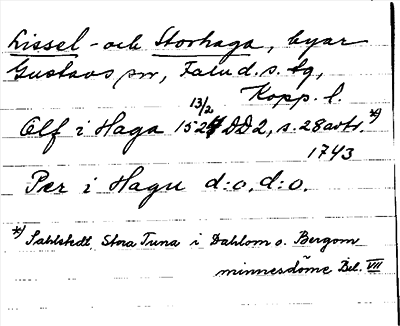 Lissel- och Storhaga, byar
Gustavs sn, Falu d.s. tg,
Kopp. l.
13/2
Olf i Haga 1524 DD2, s. 28 avtr. *)
1743
Per i Hagu d:o, d:o.
*) Sahlstedt, Stora Tuna i Dahlom o. Bergom
minnesdöme Bil. VII